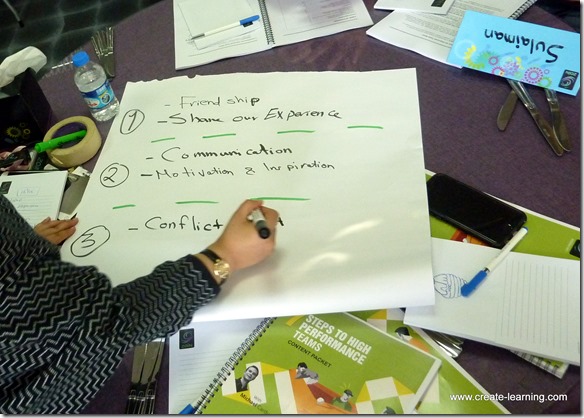 Sulaiman
- Friendship
1 - Share our Experience
- Communication
2 - Motivation & Inspiration
3 - Conflict
STEPS TO HIGH
PERFORMANCE
TEAMS
CONTENT PACKET
www.create-learning.com